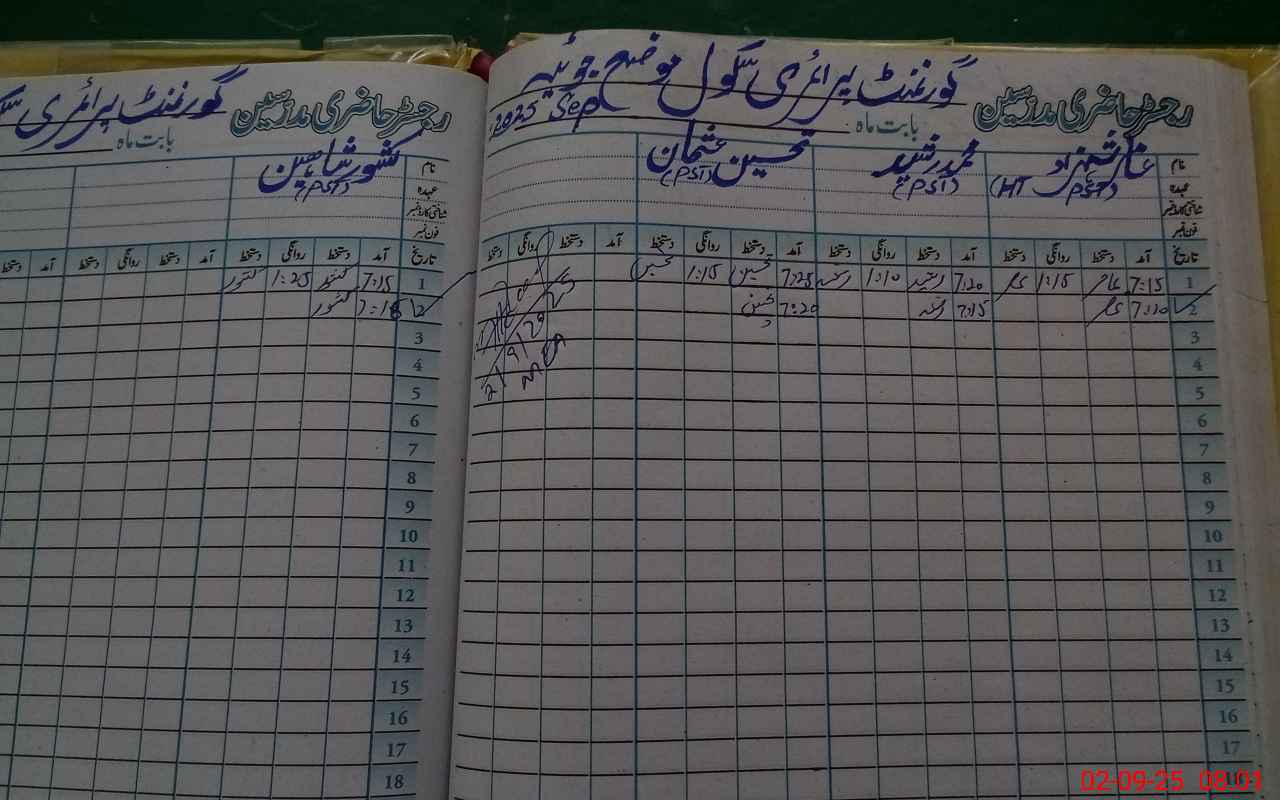 رجسٹر حاضری مدرسین گورنمنٹ پرائمری سکول موضع جوئیہ
بابت ماہ Sep 2025
نام محمد رشید تحسین عثمان
عہدہ (PST) (PST)
شناختی کارڈ نمبر
فون نمبر
تاریخ آمد دستخط روانگی دستخط آمد دستخط روانگی دستخط آمد دستخط روانگی دستخط آمد دستخط روانگی دستخط
1 7:15 عامر 1:15 عامر 7:20 رشید 1:10 رشید 7:25 تحسین 1:15 تحسین
2 7:10 عامر 7:15 رشید 7:20 تحسین
3
4
5
6
7
8
9
10
11
12
13
14
15
16
17
18
2/9/2025
MEA
رجسٹر حاضری مدرسین گورنمنٹ پرائمری
بابت ماہ
نام کشور شاہین
عہدہ (PST)
شناختی کارڈ نمبر
فون نمبر
تاریخ آمد دستخط روانگی دستخط آمد دستخط روانگی دستخط آمد دستخط
1 7:15 کشور 1:25 کشور
2 کشور
3
4
5
6
7
8
9
10
11
12
13
14
15
16
17
18
02-09-25 08:01